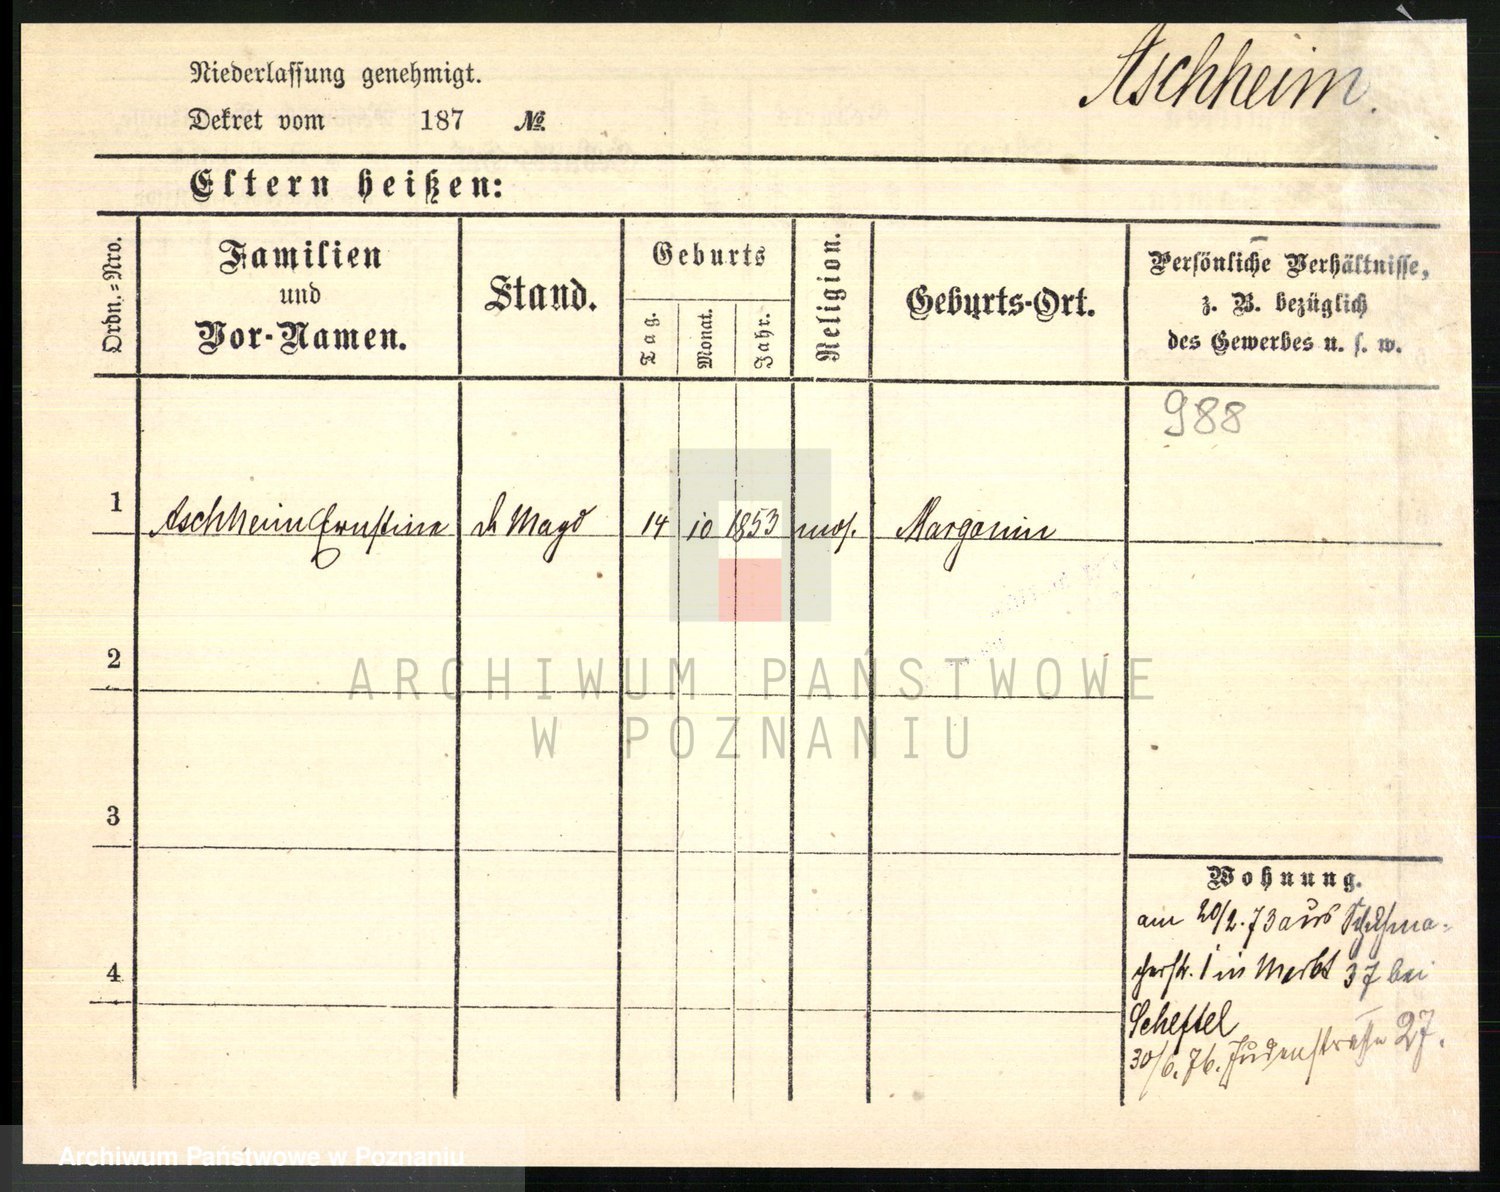 Aschheim.
Niederlassung genehmigt.
Dekret vom 187 №
Eltern heißen:
Ordn.-Nro.
Familien
und
Vor-Namen.
Stand.
Geburts
Tag.
Monat.
Jahr.
Religion.
Geburts-Ort.
Persönliche Verhältnisse,
z. B. bezüglich
des Gewerbes u. s. w.
988
1 Aschheim Ernstine d Magd 14 10 1853 mos. Margonin
2
3
4
Wohnung.
am 20/2.73 aus Schuhma-
cherstr. 1 in Markt 37 bei
Scheftel
30/6.76. Judenstraße 27.
ARCHIWUM PAŃSTWOWE
W POZNANIU
Archiwum Państwowe w Poznaniu